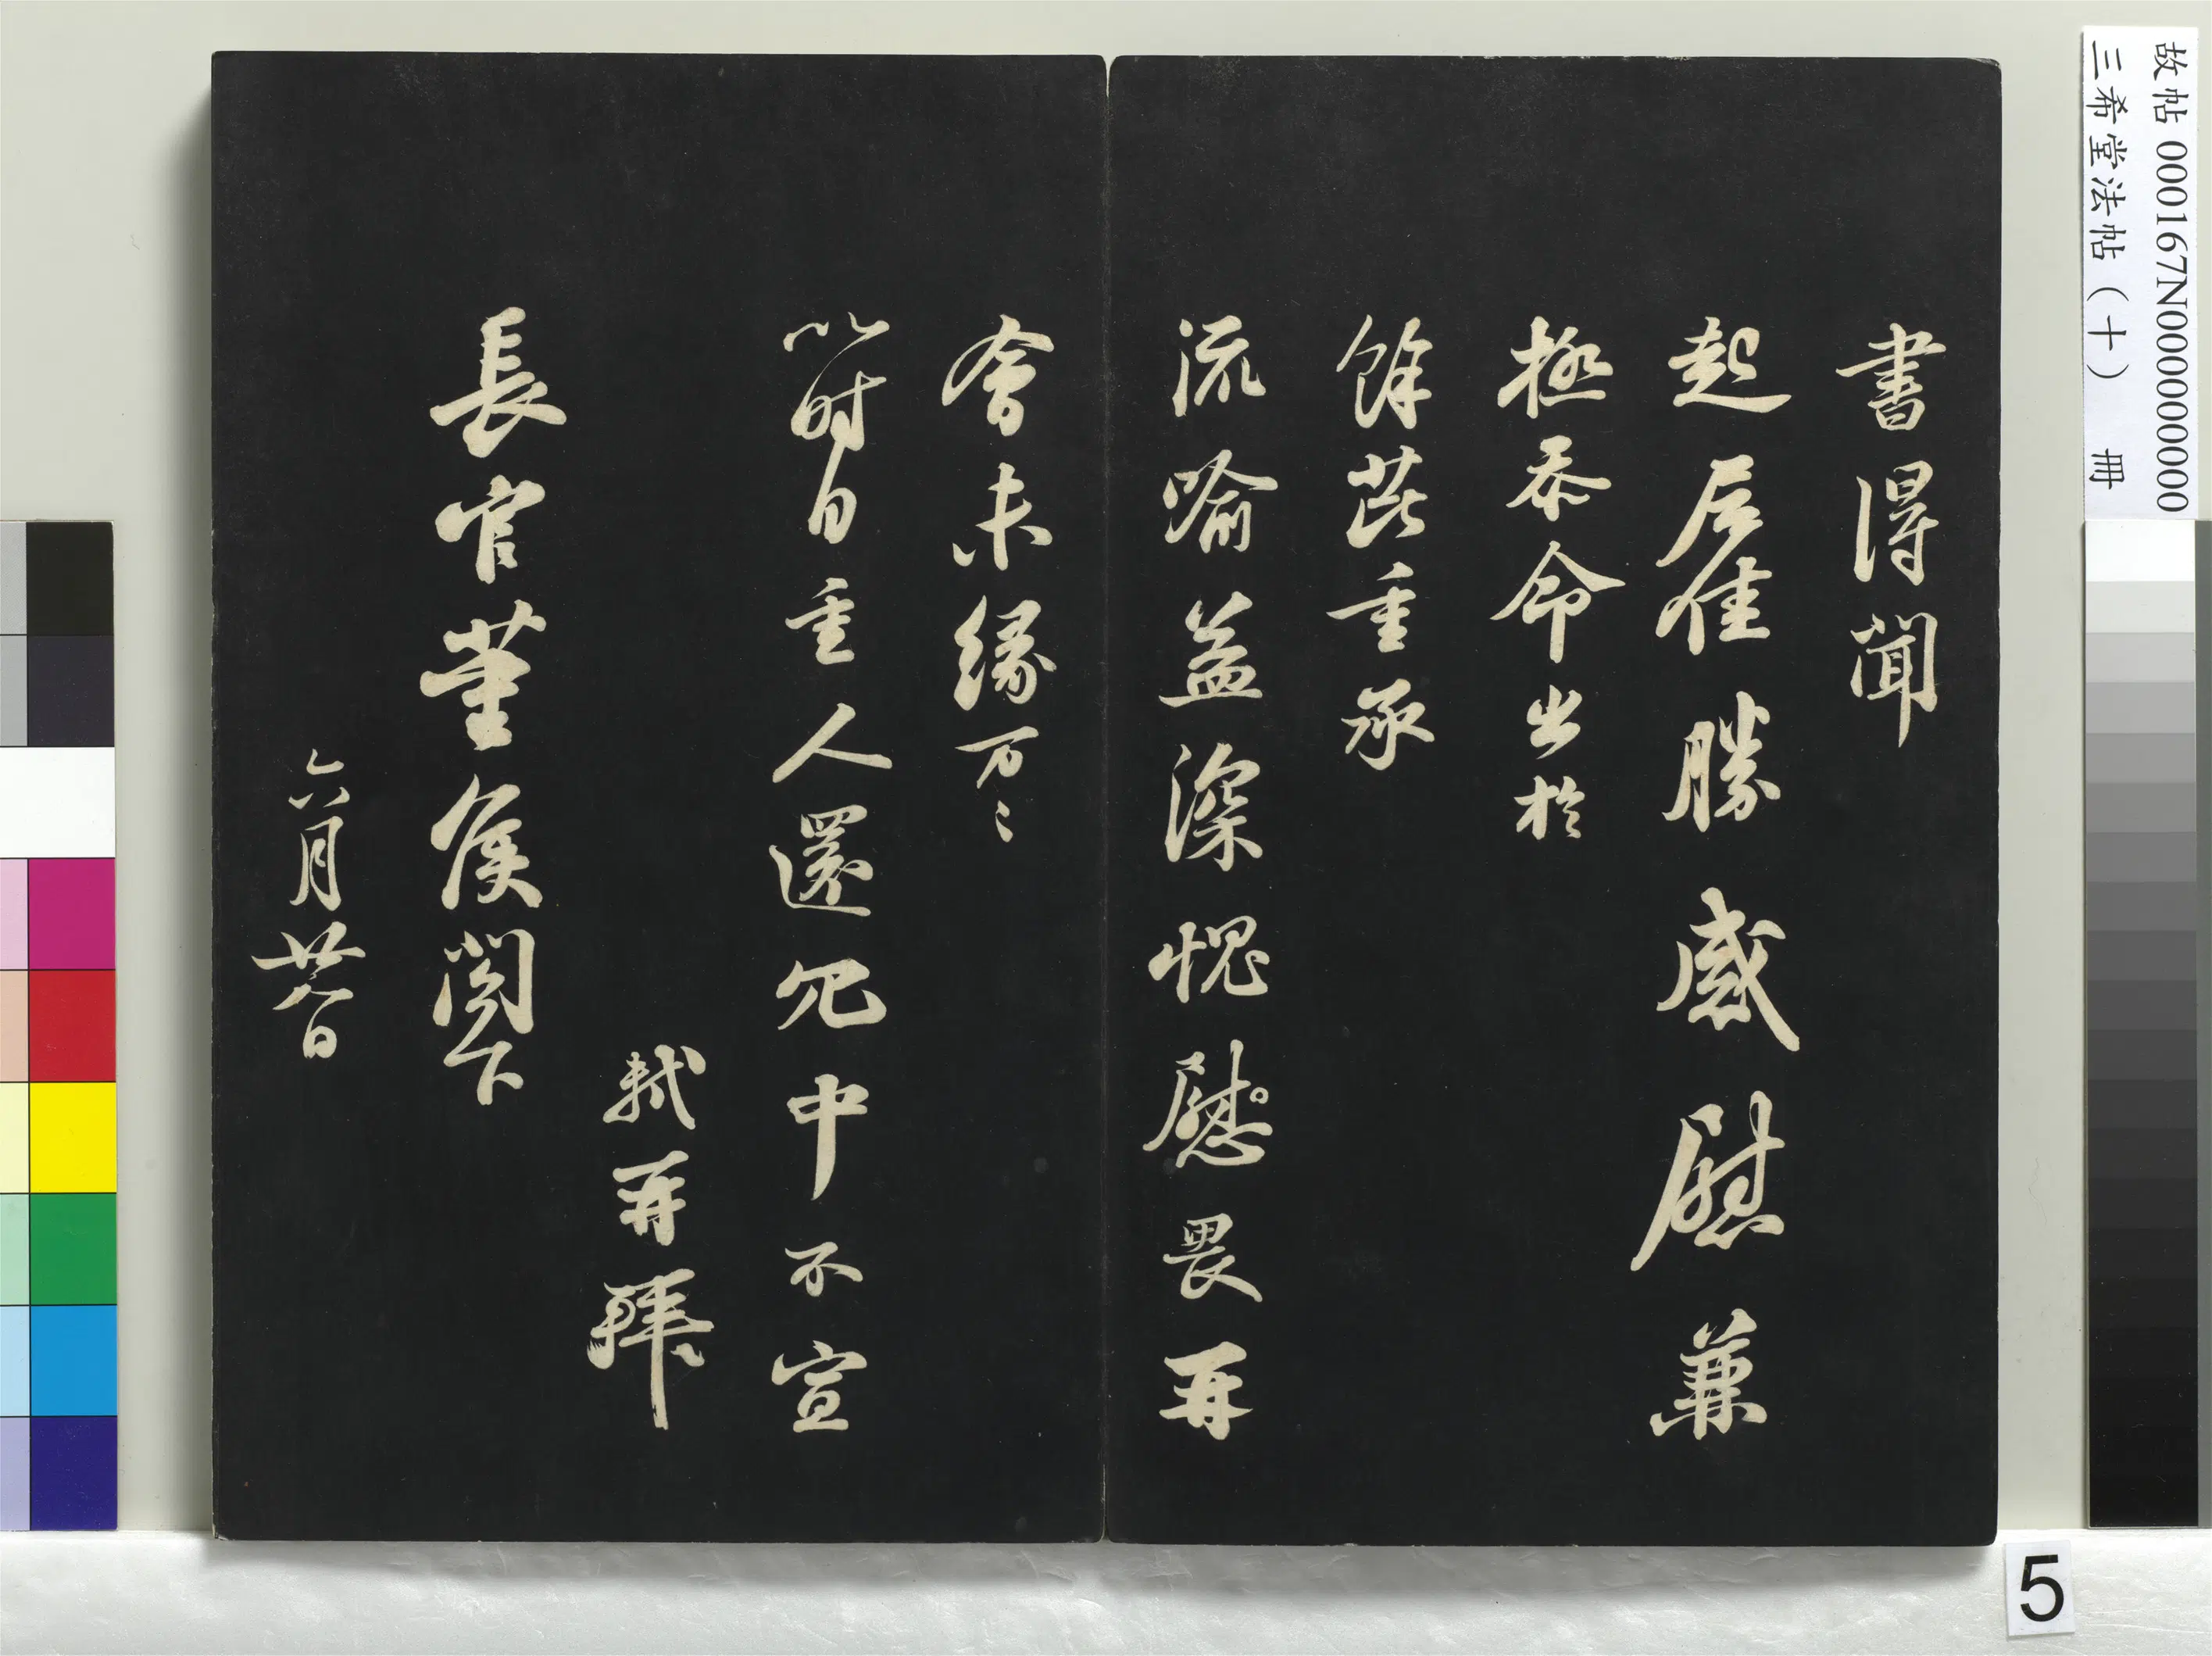 書得聞
起居佳勝感慰兼
極忝命出於
餘芘重承
流喻益深愧慰畏再
會未緣万〻
以時自重人還冗中不宣
軾再拜
長官董侯閤下
六月廿八日
故帖 000167N000000000
三希堂法帖（十） 冊
5